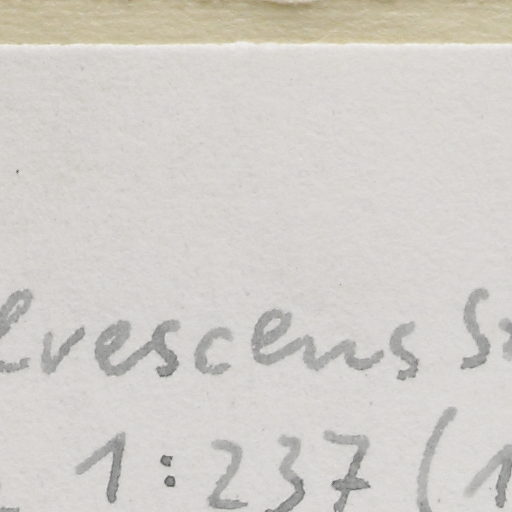 lvescens S
1:237 (1